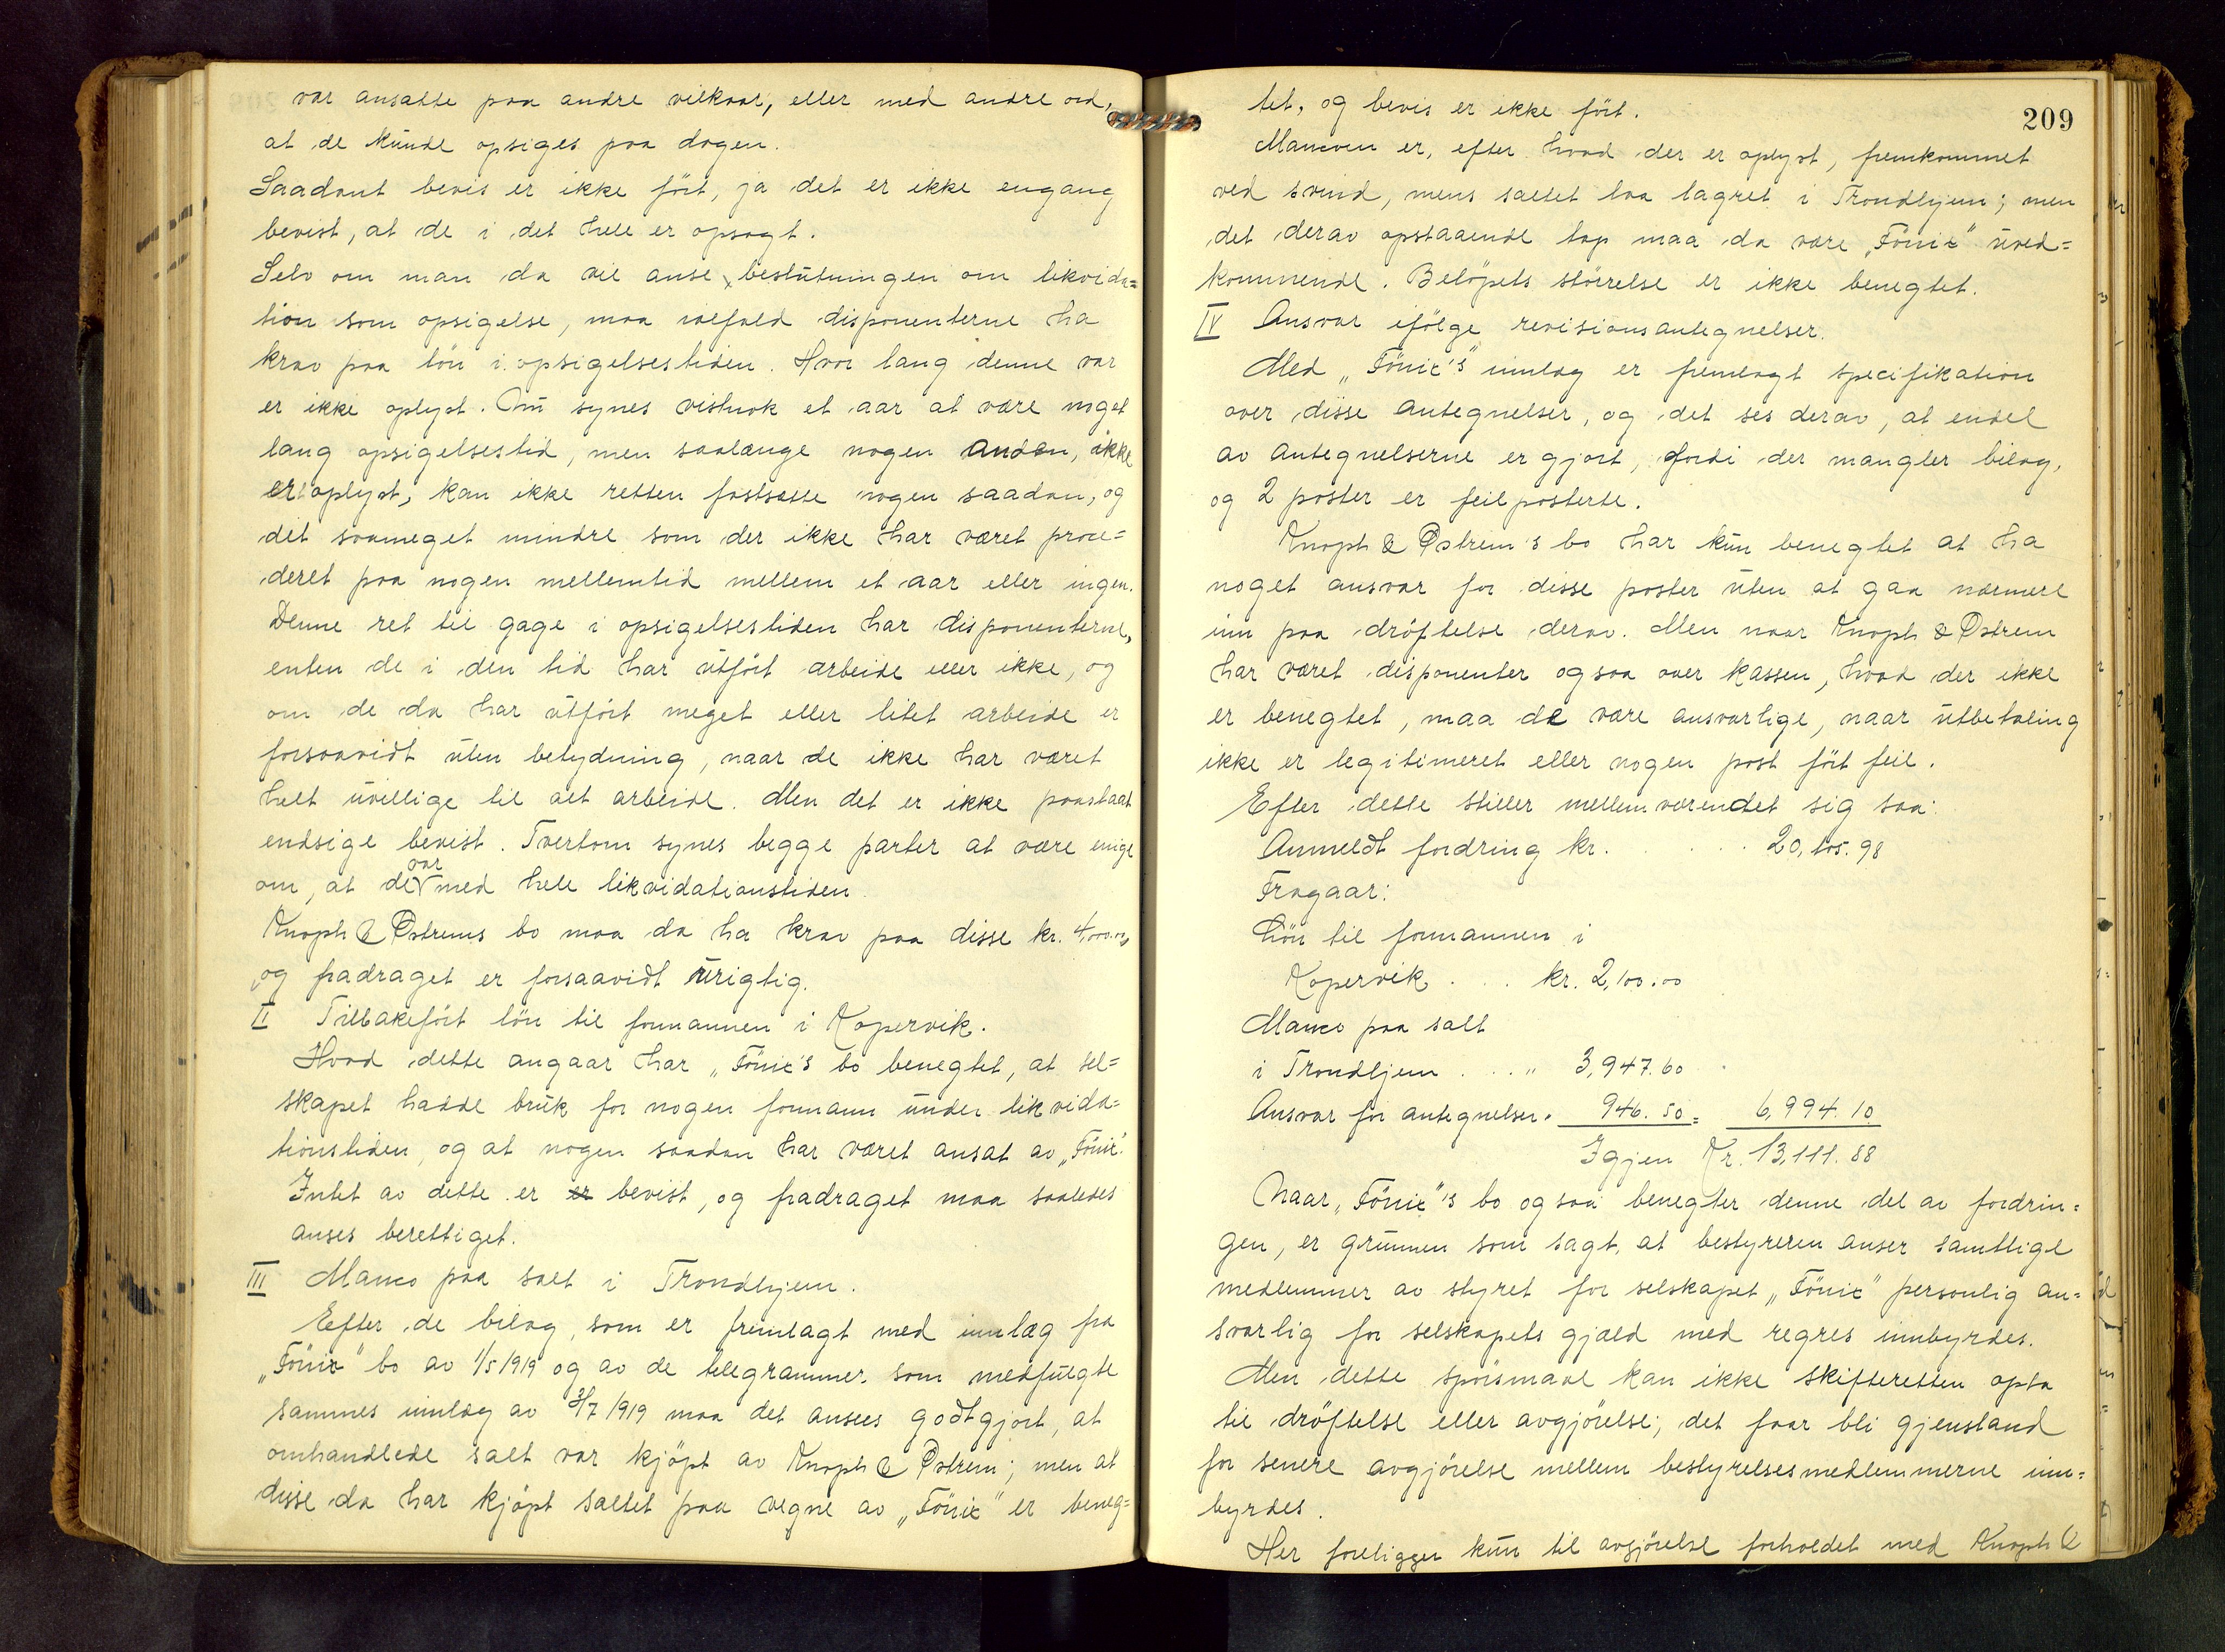 var ansatte paa andre vilkaar, eller med andre ord,
at de kunde opsiges paa dagen.
Saadant bevis er ikke ført, ja det er ikke engang
bevist, at de i det hele er opsagt.
Selv om man da vil anse beslutningen om likvida=
tion som opsigelse, maa ialfald disponenterne ha
krav paa løn i opsigelsestiden. Hvor lang denne var
er ikke oplyst. Nu synes vistnok et aar at være noget
lang opsigelsestid, men saalænge nogen anden, ikke
er oplyst, kan ikke retten fastsætte nogen saadan, og
det saameget mindre som der ikke har været proce=
deret paa nogen mellemtid mellem et aar eller ingen.
Denne ret til gage i opsigelsestiden har disponenterne,
enten de i den tid har utført arbeide eller ikke, og
om de da har utført meget eller litet arbeide er
forsaavidt uten betydning, naar de ikke har været
helt uvillige til alt arbeide. Men det er ikke paastaat
endsige bevist. Tvertom synes begge parter at være enige
om, at de var med hele likvidationstiden.
Knoph & Østrems bo maa da ha krav paa disse kr. 4,000.00,
og fradraget er forsaavidt urigtig.
II Tilbakeført løn til formannen i Kopervik.
Hvad dette angaar har „Fönix's bo benegtet, at sel=
skapet hadde bruk for nogen formann under likvida=
tionstiden, og at nogen saadan har været ansat av „Fönix".
Intet av dette er er bevist, og fradraget maa saaledes
anses berettiget.
III Manco paa salt i Trondhjem.
Efter de bilag, som er fremlagt med innlæg fra
„Fönix" bo av 1/5 1919 og av de telegrammer som medfulgte
sammes innlæg av 3/7 1919 maa det ansees godtgjort, at
omhandlede salt var kjøpt av Knoph & Østrem; men at
disse da har kjøpt saltet paa vegne av „Fönix" er beneg=
209
tet, og bevis er ikke ført.
Mancoen er, efter hvad der er oplyst, fremkommet
ved svind, mens saltet laa lagret i Trondhjem; men
det derav opstaaende tap maa da være „Fönix" uved=
kommende. Beløpets størrelse er ikke benegtet.
IV Ansvar ifølge revisionsantegnelser.
Med „Fönix's" innlæg er fremlagt specifikation
over disse antegnelser, og det ses derav, at endel
av antegnelserne er gjort, fordi der mangler bilag,
og 2 poster er feilposterte.
Knoph & Østrem's bo har kun benegtet at ha
noget ansvar for disse poster uten at gaa nærmere
inn paa drøftelse derav. Men naar Knoph & Østrem
har været disponenter ogsaa over kassen, hvad der ikke
er benegtet, maa de være ansvarlige, naar utbetaling
ikke er legitimeret eller nogen post ført feil.
Efter dette stiller mellemværendet sig saa:
Anmeldt fordring kr. . . . . 20,105.98
Fragaar:
Løn til formannen i
Kopervik . . . kr. 2,100.00
Manco paa salt
i Trondhjem . . . " 3,947.60
Ansvar for antegnelser " 946.50 = 6,994.10
Igjen Kr. 13,111.88
Naar „Fönix"'s bo ogsaa benegter denne del av fordrin=
gen, er grunnen som sagt, at bestyreren anser samtlige
medlemmer av styret for selskapet „Fönix" personlig an=
svarlig for selskapets gjæld med regres innbyrdes.
Men dette spørsmaal kan ikke skifteretten opta
til drøftelse eller avgjørelse; det faar bli gjenstand
for senere avgjørelse mellem bestyrelsesmedlemmerne inn=
byrdes.
Her foreligger kun til avgjørelse forholdet med Knoph &